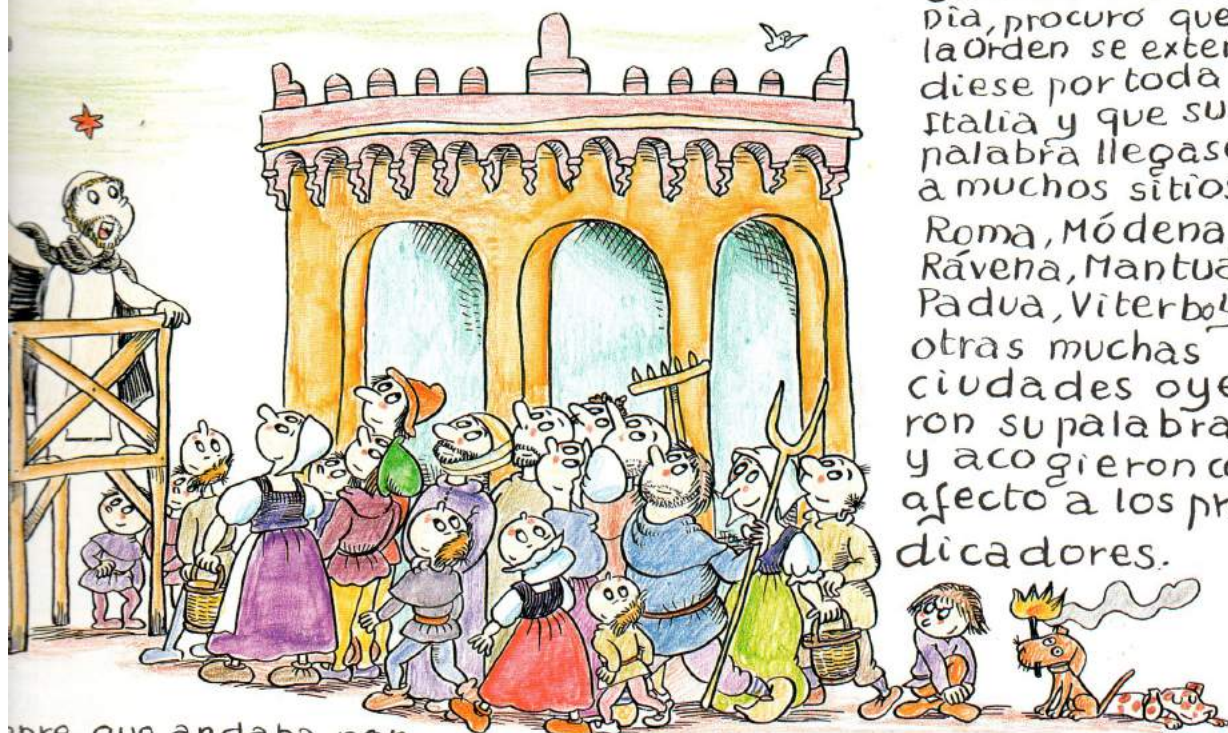 Día, procuró que
la Orden se exten
diese por toda
Italia y que su
palabra llegase
a muchos sitios
Roma, Módena
Rávena, Mantua
Padua, Viterbo y
otras muchas
ciudades oye
ron su palabra
y acogieron co
afecto a los pr
dicadores.
que andaba por